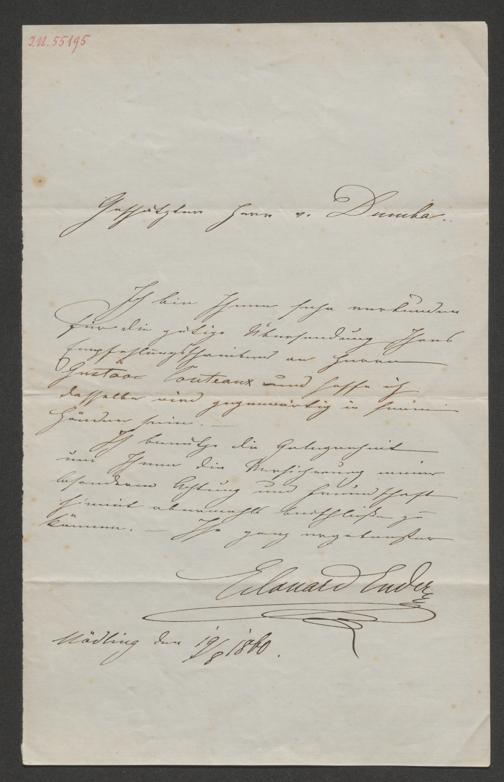 J.N. 55195
Geschätzter Herr v. Dumba.
Ich bin Ihnen sehr verbunden
für die gütige Übersendung Ihres
Empfehlungsschreibens an Herrn
Gustav Couteaux und hoffe ich
dasselbe wird gegenwärtig in seinen
Händen sein. —
Ich benütze die Gelegenheit
um Ihnen die Versicherung meiner
besonderen Achtung und Freundschaft
hiemit abermahls zu
können. — Ihr ganz ergebenster
Eduard Ender
Mödling den 19/8 1860.